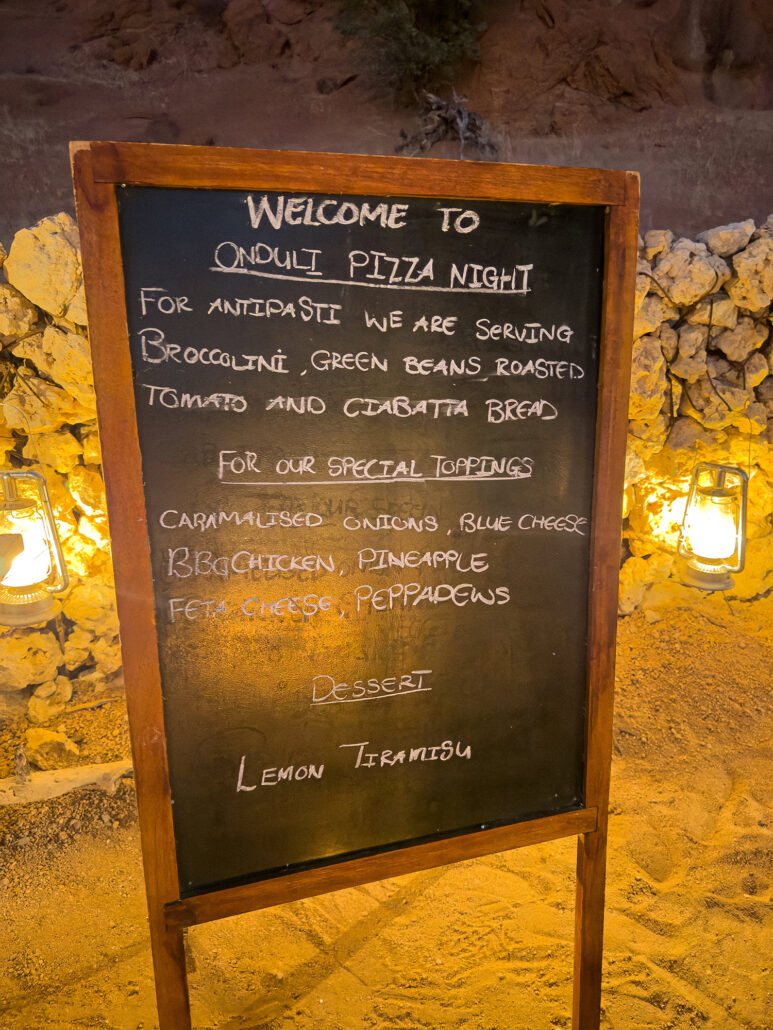 WELCOME TO
ONDULI PIZZA NIGHT
FOR ANTIPASTI WE ARE SERVING
BROCCOLINI, GREEN BEANS ROASTED
TOMATO AND CIABATTA BREAD
FOR OUR SPECIAL TOPPINGS
CARAMALISED ONIONS, BLUE CHEESE
BBQ CHICKEN, PINEAPPLE
FETA CHEESE, PEPPADEWS
DESSERT
LEMON TIRAMISU